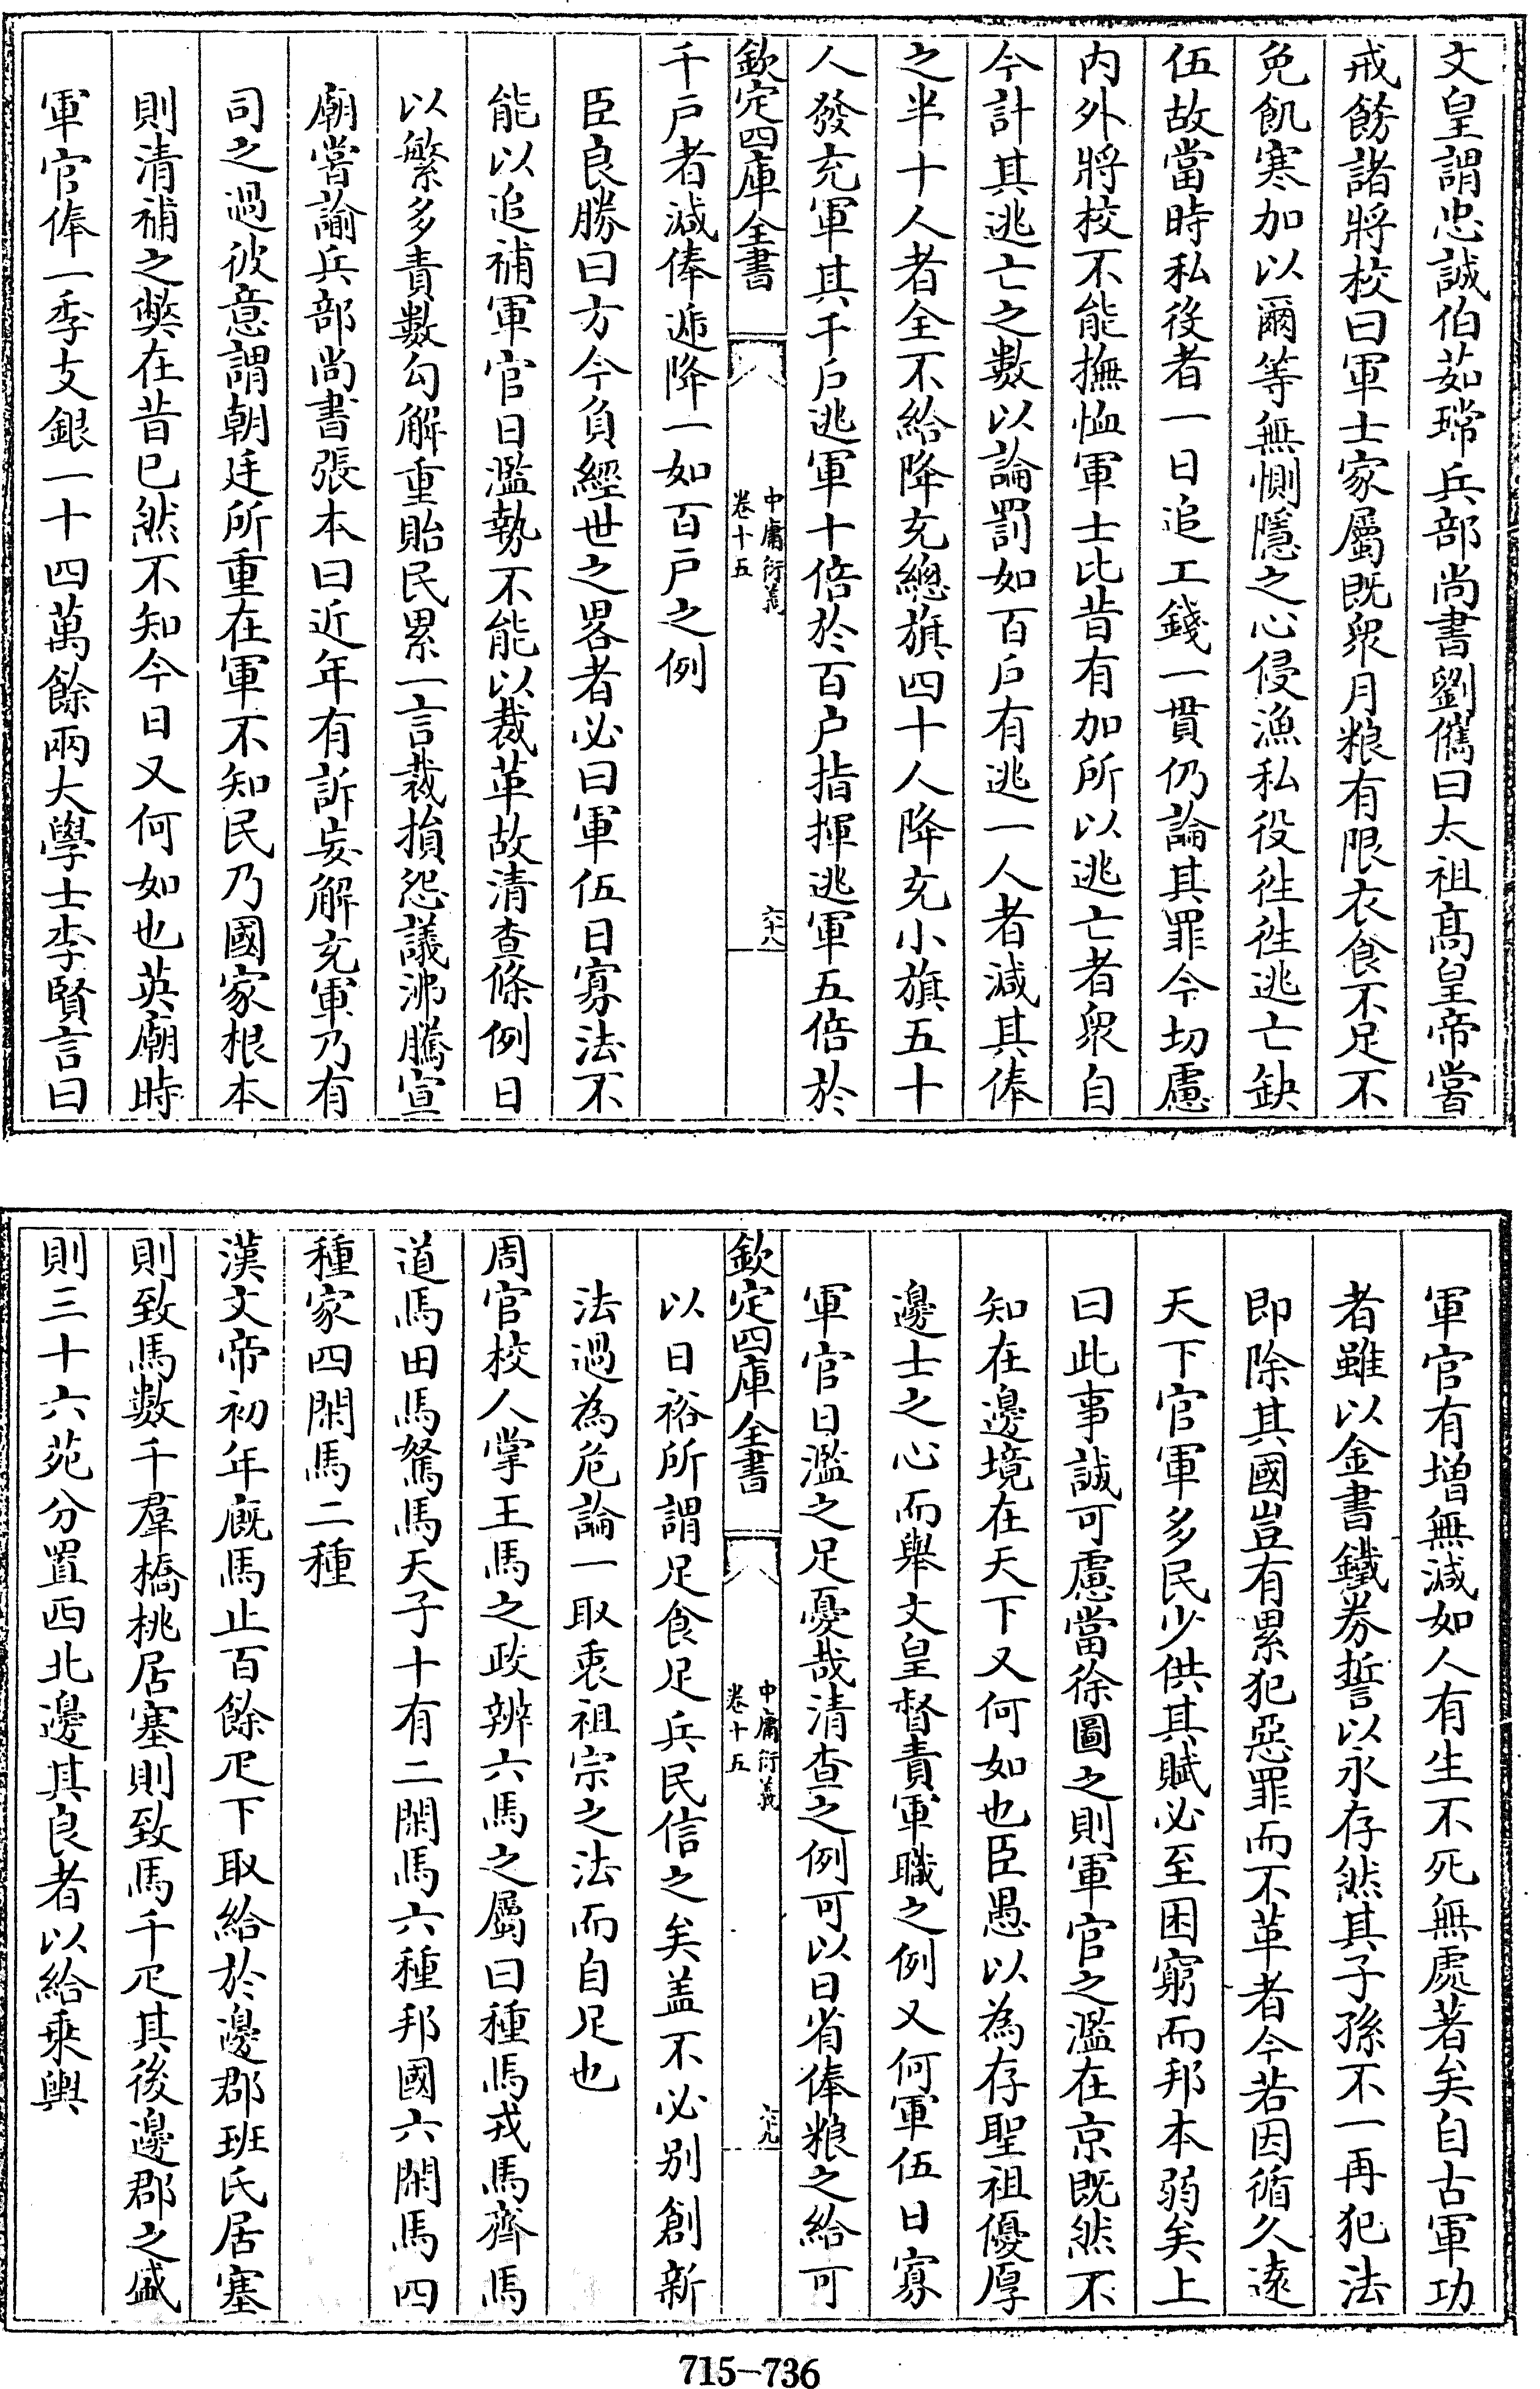 文皇謂忠誠伯茹瑺兵部尚書劉儁曰太祖髙皇帝嘗
戒飭諸將校曰軍士家屬既衆月粮有限衣食不足不
免飢寒加以爾等無惻隱之心侵漁私役徃徃逃亡缺
伍故當時私役者一日追工錢一貫仍論其罪今切慮
内外將校不能撫恤軍士比昔有加所以逃亡者衆自
今計其逃亡之數以論罰如百戶有逃一人者減其俸
之半十人者全不給降充總旗四十人降充小旗五十
人發充軍其千戶逃軍十倍於百户指揮逃軍五倍於
欽定四庫全書
中庸衍義
卷十五
六十八
千戶者減俸遞降一如百戶之例
臣良勝曰方今負經世之畧者必曰軍伍日寡法不
能以追補軍官日濫勢不能以裁革故清查條例日
以繁多責數勾解重貽民累一言裁損怨議沸騰宣
廟嘗諭兵部尚書張本曰近年有訴妄解充軍乃有
司之過彼意謂朝廷所重在軍不知民乃國家根本
則清補之弊在昔已然不知今日又何如也英廟時
軍官俸一季支銀一十四萬餘兩大學士李賢言曰
軍官有增無減如人有生不死無處著矣自古軍功
者雖以金書鐵券誓以永存然其子孫不一再犯法
即除其國豈有累犯惡罪而不革者今若因循久遠
天下官軍多民少供其賦必至困窮而邦本弱矣上
曰此事誠可慮當徐圖之則軍官之濫在京既然不
知在邊境在天下又何如也臣愚以為存聖祖優厚
邊士之心而舉文皇督責軍職之例又何軍伍日寡
軍官日濫之足憂哉清查之例可以日省俸粮之給可
欽定四庫全書
中庸衍義
卷十五
六十九
以日裕所謂足食足兵民信之矣盖不必别創新
法過為危論一取衷祖宗之法而自足也
周官校人掌王馬之政辨六馬之屬曰種馬戎馬齊馬
道馬田馬駑馬天子十有二閑馬六種邦國六閑馬四
種家四閑馬二種
漢文帝初年廐馬止百餘疋下取給於邊郡班氏居塞
則致馬數千羣橋桃居塞則致馬千疋其後邊郡之盛
則三十六苑分置西北邊其良者以給乘輿
715-736